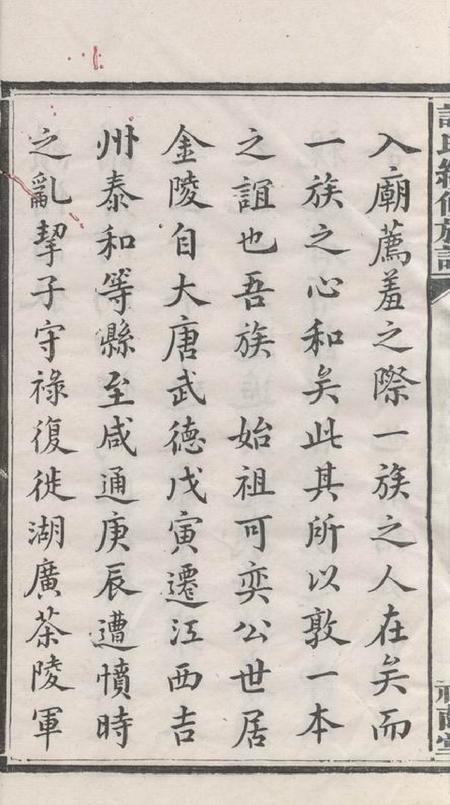 入廟薦羞之際一族之人在矣而
一族之心和矣此其所以敦一本
之誼也吾族　始祖可奕公世居
金陵自大唐武德戊寅遷江西吉
州泰和等縣至咸通庚辰遭憤時
之亂挈子守祿復徙湖廣茶陵軍